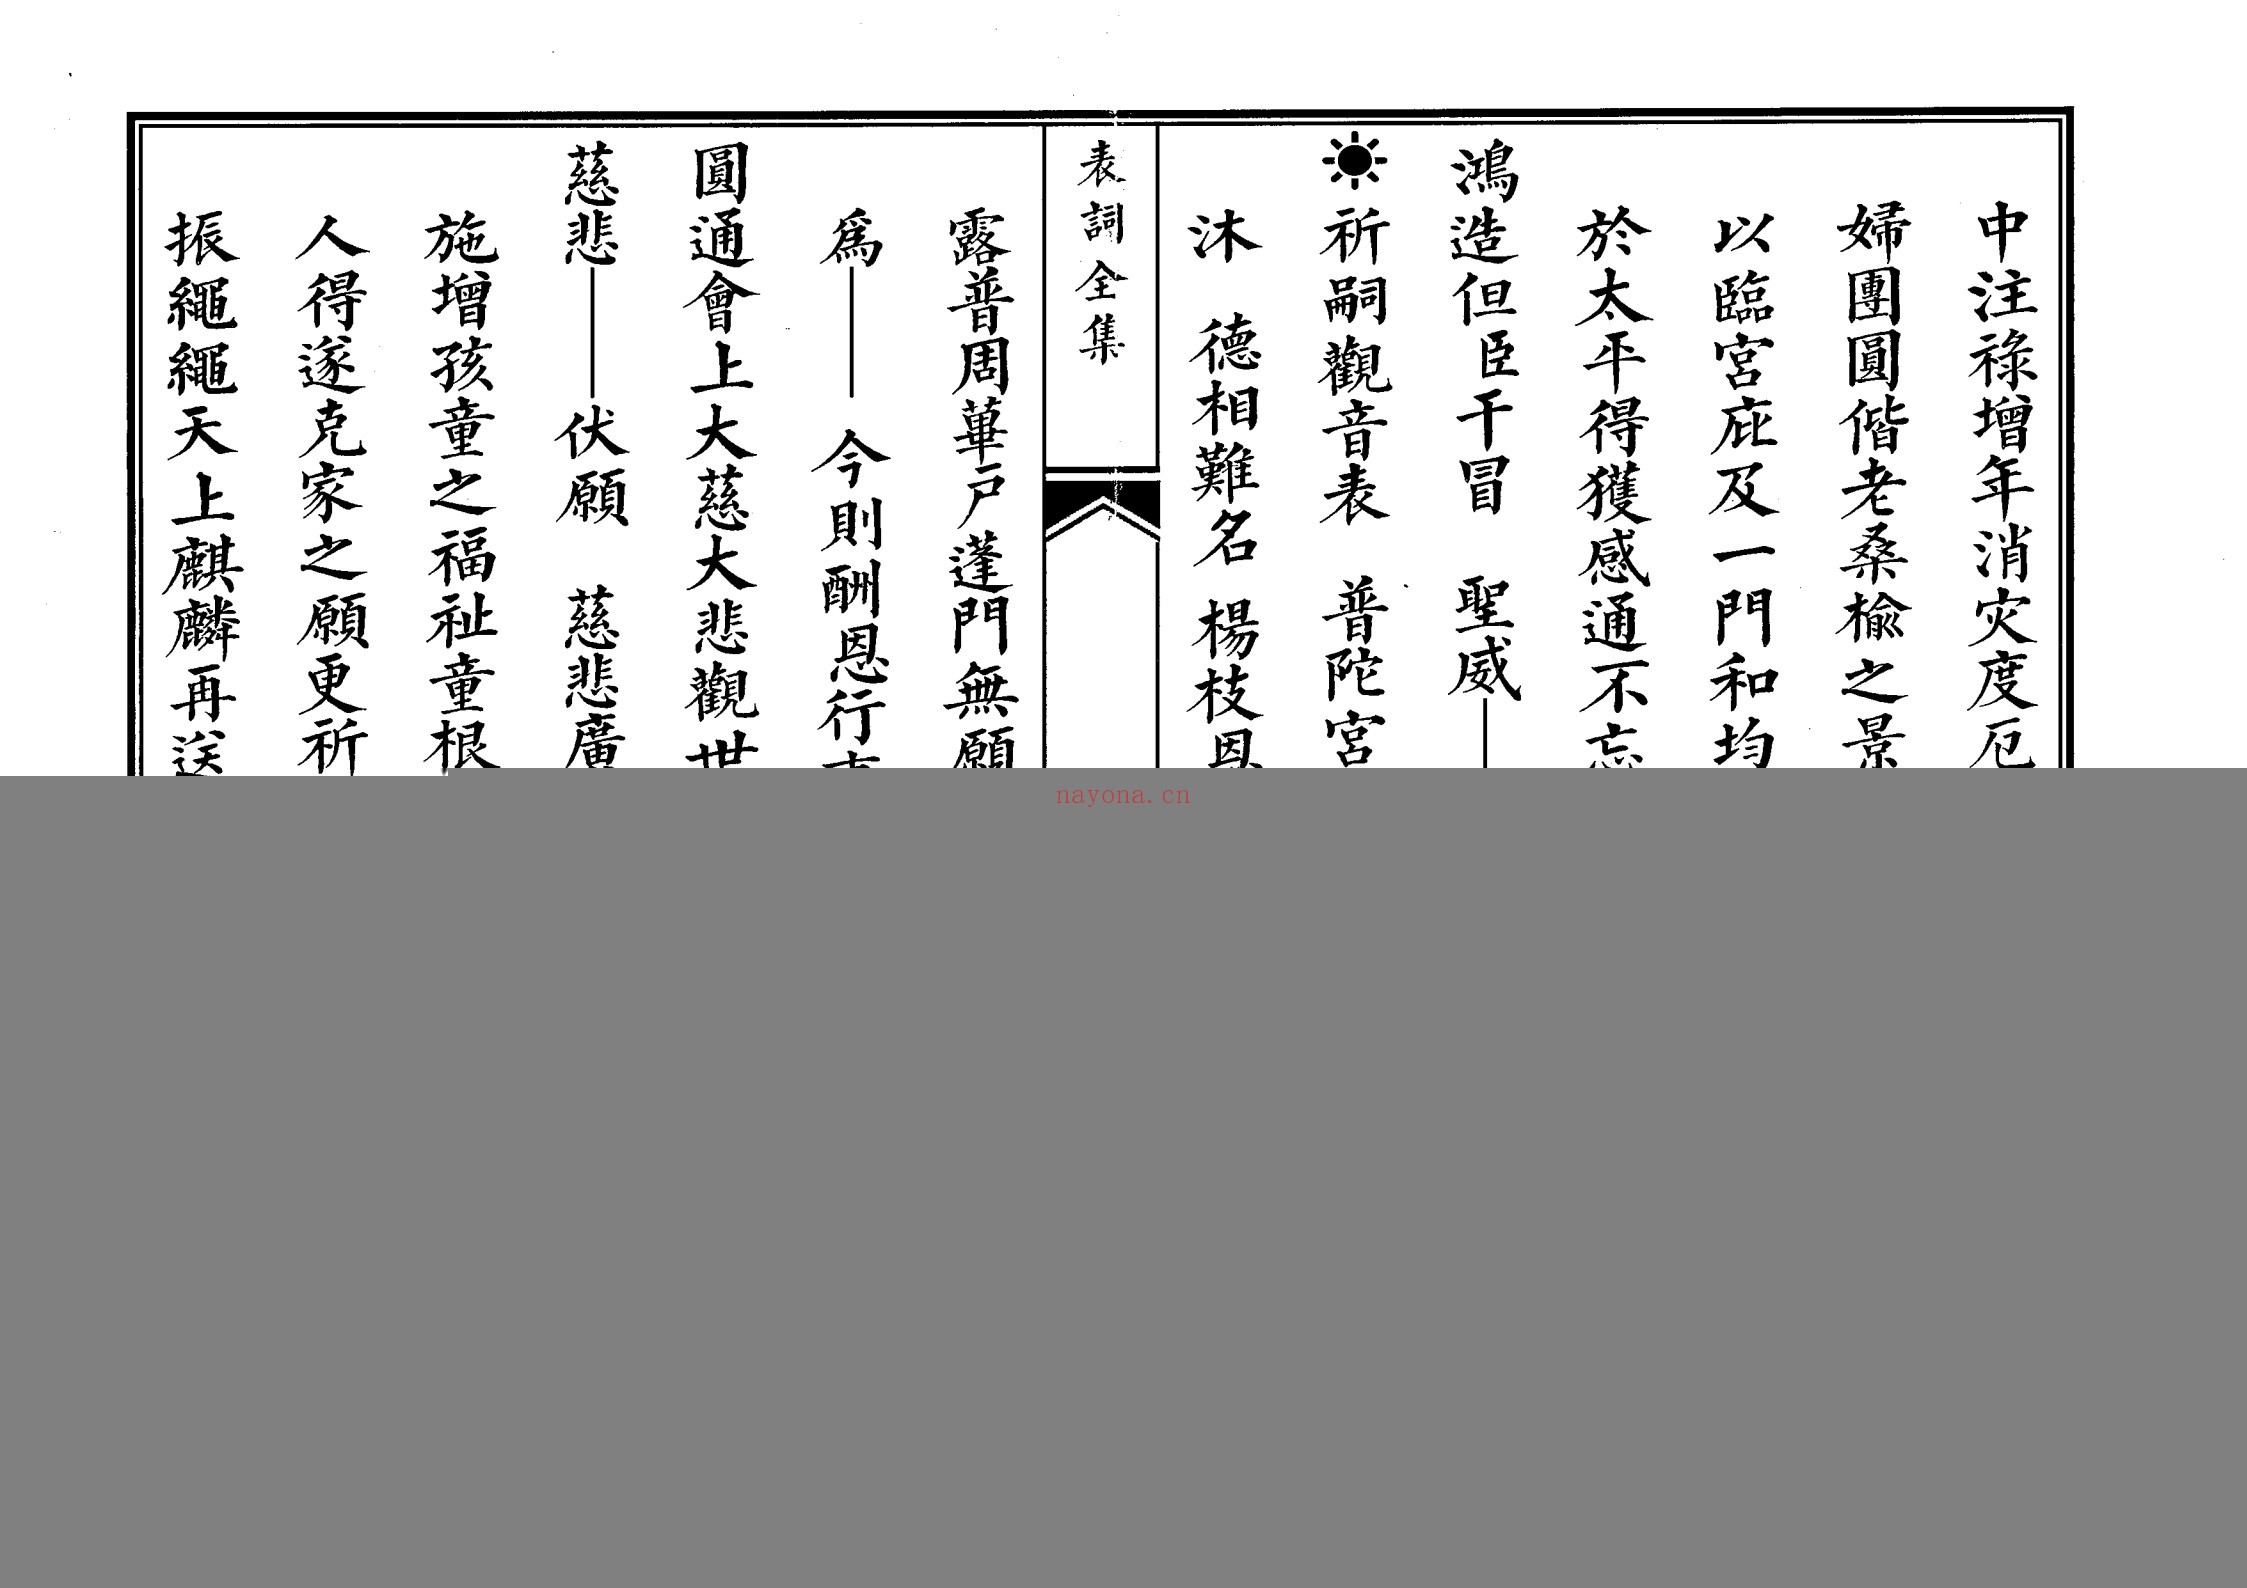 中注祿增年消灾度厄
婦團圓偕老桑榆之景
以臨宮庇及一門和均
於太平得獲感通不忘
鴻造但臣干冒　聖威—
祈嗣觀音表　普陀宮
沐　德相難名　楊枝恩
表詞全集
露普周蓽戶蓬門無願
為—　今則酬恩行
圓通會上大慈大悲觀世
慈悲—　伏願　慈悲廣
施增孩童之福祉童根
人得遂克家之願更祈
振繩繩天上麒麟再送
nayona.cn